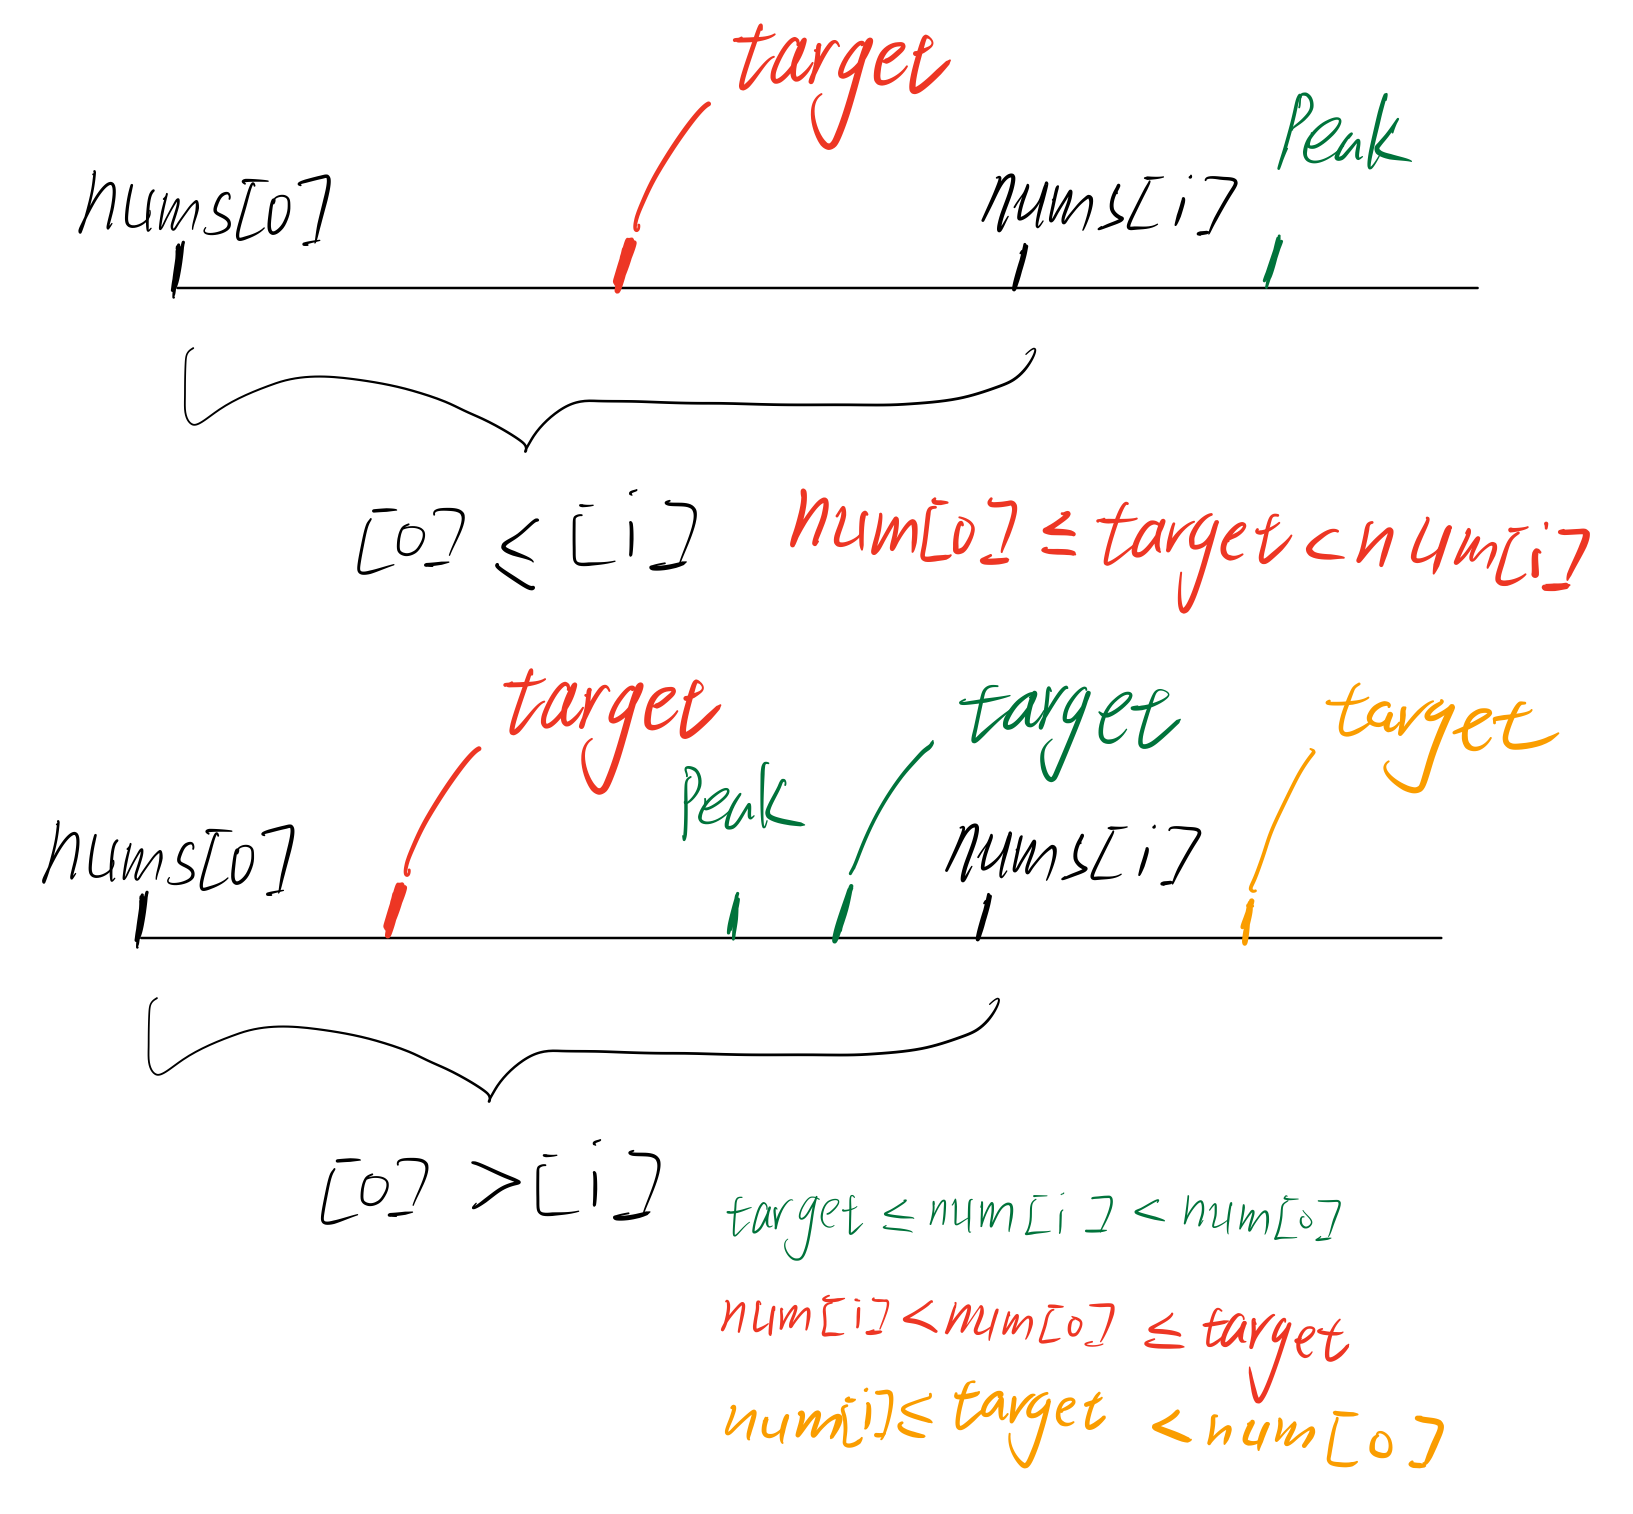 target
Peak
nums[0] nums[i]
[0] ≤ [i] num[0] ≤ target < num[i]
target target target
Peak
nums[0] nums[i]
[0] > [i]
target ≤ num[i] < num[0]
num[i] < num[0] ≤ target
num[i] ≤ target < num[0]